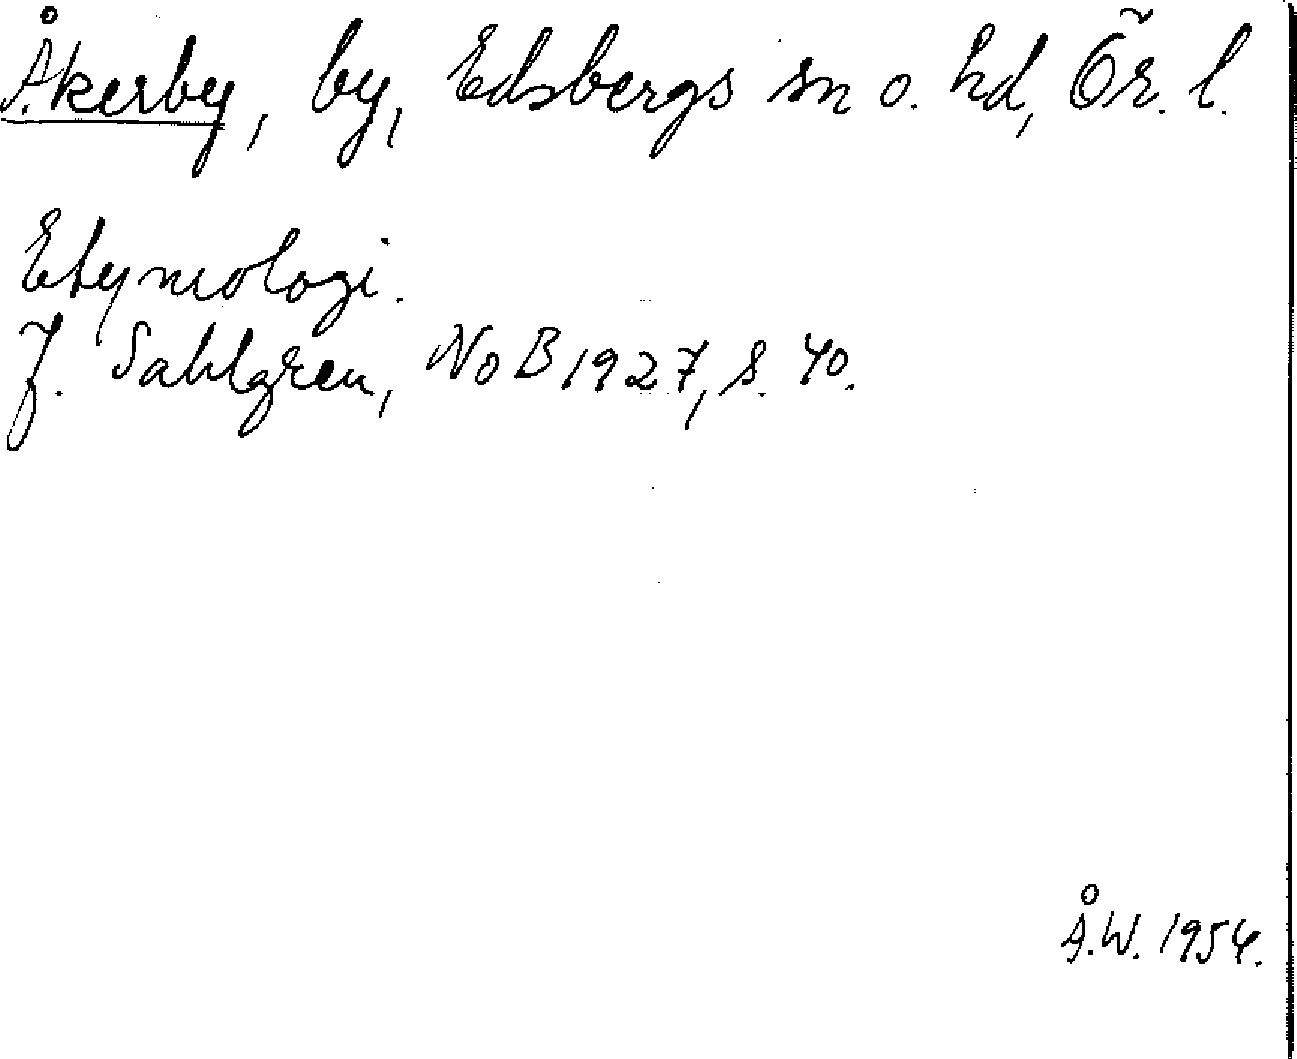 Åkerby, by, Edsbergs sn o. hd, Ör. l.
Etymologi.
J. Sahlgren, NoB 1927, s. 40.
Å.W. 1954.